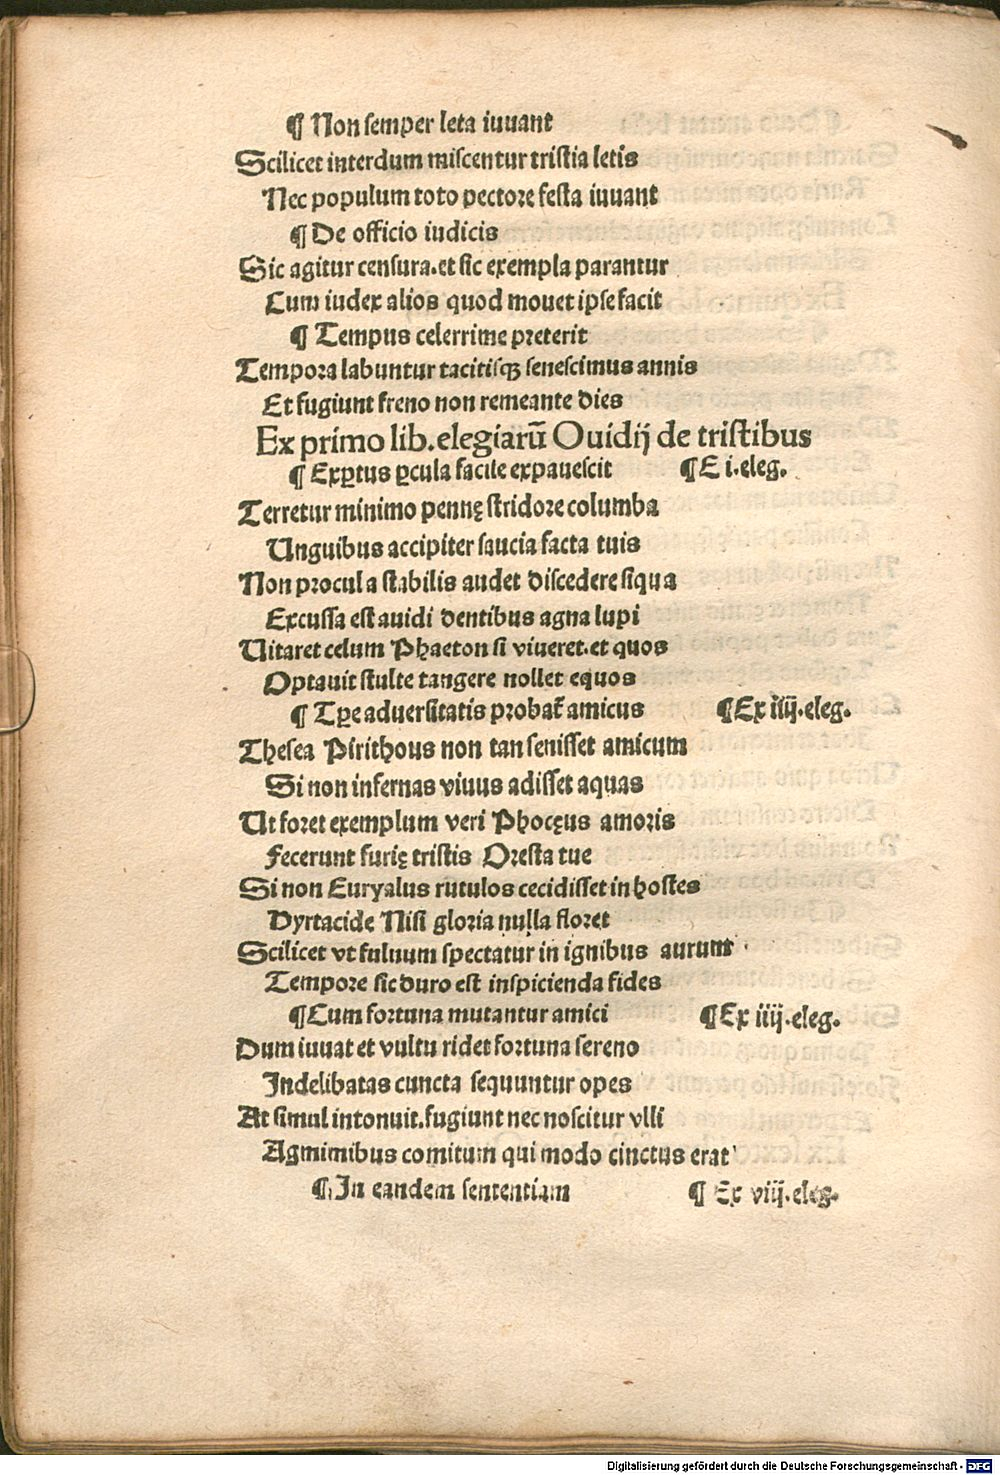 ¶ Non semper leta iuuant
Scilicet interdum miscentur tristia letis
Nec populum toto pectore festa iuuant
¶ De officio iudicis
Sic agitur censura.et sic exempla parantur
Cum iudex alios quod mouet ipse facit
¶ Tempus celerrime preterit
Tempora labuntur tacitisqꝫ senescimus annis
Et fugiunt freno non remeante dies
Ex primo lib.elegiarū Ouidij de tristibus
¶ Exꝑtus ꝑcula facile expauescit ¶ E i.eleg.
Terretur minimo pennę stridore columba
Unguibus accipiter saucia facta tuis
Non procul a stabilis audet discedere siqua
Excussa est auidi dentibus agna lupi
Uitaret celum Phaeton si viueret.et quos
Optauit stulte tangere nollet equos
¶ Tꝑe aduersitatis probat᷑ amicus ¶ Ex iiij.eleg.
Thesea Pirithous non tan senisset amicum
Si non infernas viuus adisset aquas
Ut foret exemplum veri Phocęus amoris
Fecerunt furię tristis Oresta tue
Si non Euryalus rutulos cecidisset in hostes
Dyrtacide Nisi gloria nulla floret
Scilicet vt fuluum spectatur in ignibus aurum
Tempore sic duro est inspicienda fides
¶ Cum fortuna mutantur amici ¶ Ex iiij.eleg.
Dum iuuat et vultu ridet fortuna sereno
Indelibatas cuncta sequuntur opes
At simul intonuit.fugiunt nec noscitur vlli
Agminibus comitum qui modo cinctus erat
¶ In eandem sententiam ¶ Ex viij.eleg.
Digitalisierung gefördert durch die Deutsche Forschungsgemeinschaft - DFG